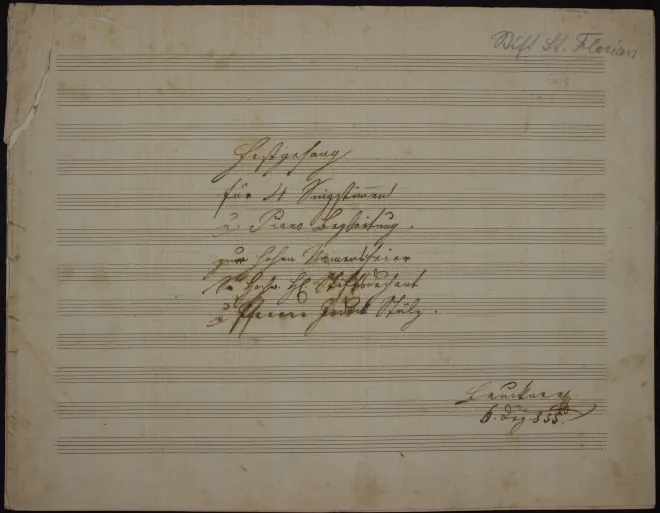 Stift St. Florian
Festgesang
für 4 Singstimmen
u. Piano Begleitung.
zur hohen Namensfeier
Sr Hochw. H. Stiftsdechant
u Pfarrer Jodok Stülz.
Bruckner
6. Dez. 855